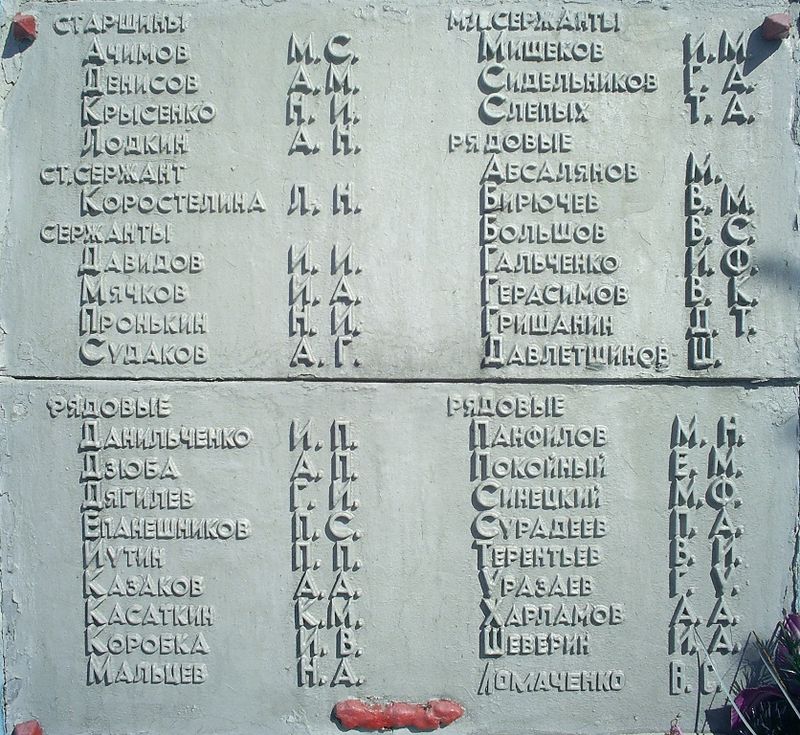 СТАРШИНЫ
АЧИМОВ М.С.
ДЕНИСОВ А.М.
КРЫСЕНКО Н.И.
ЛОДКИН А.Н.
СТ.СЕРЖАНТ
КОРОСТЕЛИНА Л.Н.
СЕРЖАНТЫ
ДАВИДОВ И.И.
МЯЧКОВ И.А.
ПРОНЬКИН Н.И.
СУДАКОВ А.Г.
МЛ.СЕРЖАНТЫ
МИШЕКОВ И.М
СИДЕЛЬНИКОВ Г.А.
СЛЕПЫХ Т.А.
РЯДОВЫЕ
АБСАЛЯНОВ М.
БИРЮЧЕВ В.М.
БОЛЬШОВ В.С.
ГАЛЬЧЕНКО И.Ф.
ГЕРАСИМОВ В.К.
ГРИШАНИН Д.Т.
ДАВЛЕТШИНОВ Ш.
РЯДОВЫЕ
ДАНИЛЬЧЕНКО И.П.
ДЗЮБА А.П.
ДЯГИЛЕВ Г.И.
ЕПАНЕШНИКОВ П.С.
ИУТИН П.П.
КАЗАКОВ А.А.
КАСАТКИН К.М.
КОРОБКА И.В.
МАЛЬЦЕВ Н.А.
РЯДОВЫЕ
ПАНФИЛОВ М.Н.
ПОКОЙНЫЙ Е.М.
СИНЕЦКИЙ М.Ф.
СУРАДЕЕВ П.А.
ТЕРЕНТЬЕВ В.И.
УРАЗАЕВ Г.У.
ХАРЛАМОВ А.А.
ШЕВЕРИН И.А.
ЛОМАЧЕНКО В.С.